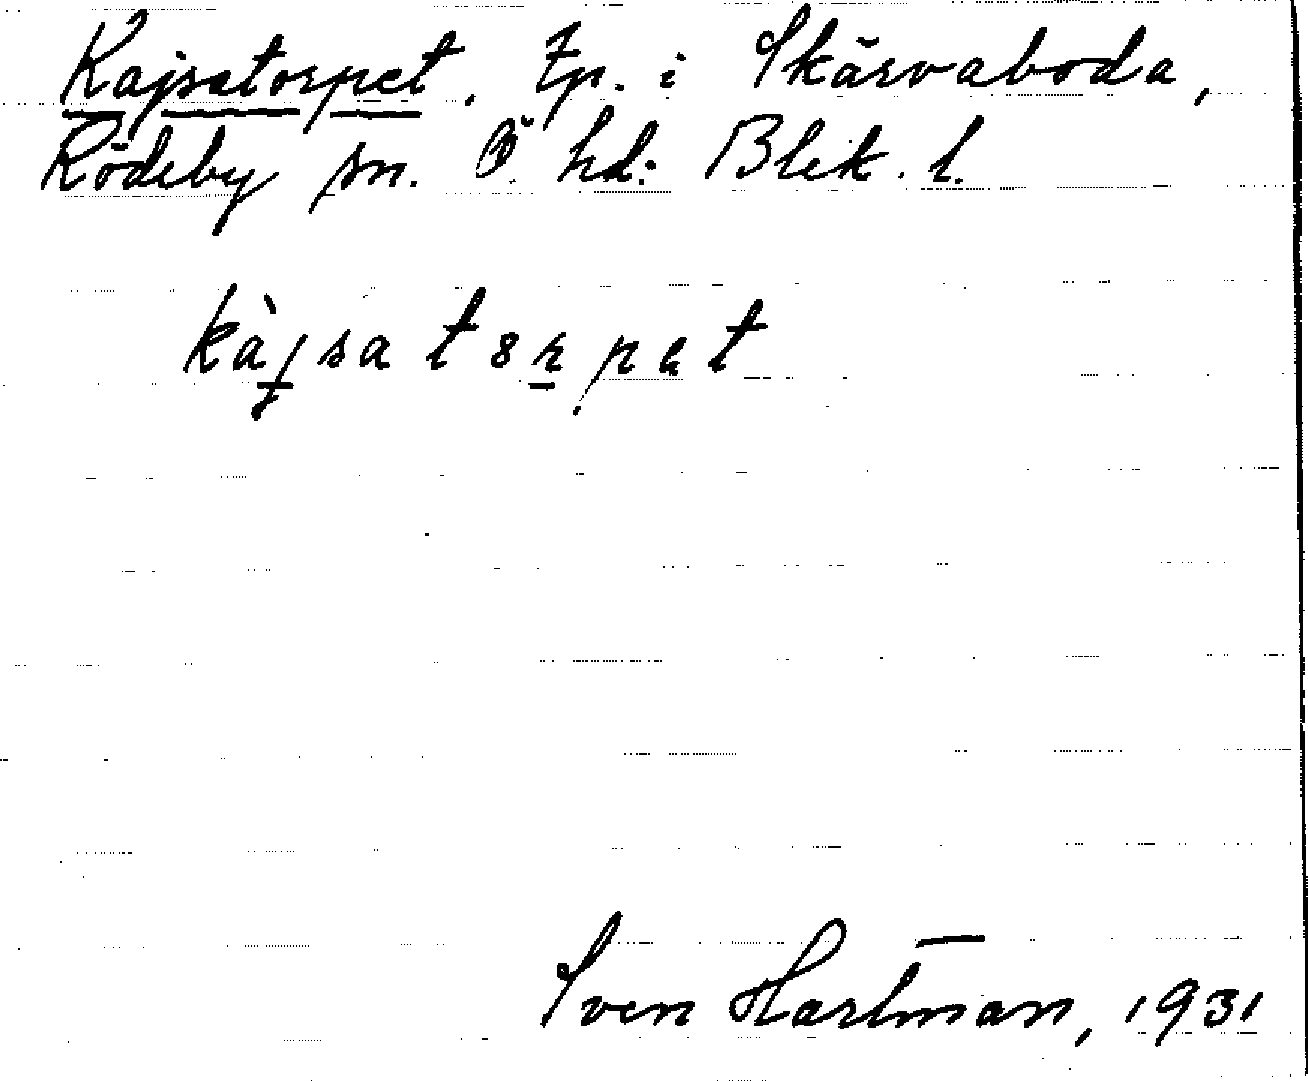 Kajsatorpet. Tp. i Skärvaboda,
Rödeby sn. Ö. hd. Blek. l.
kàjsatorpet
Sven Hartman, 1931